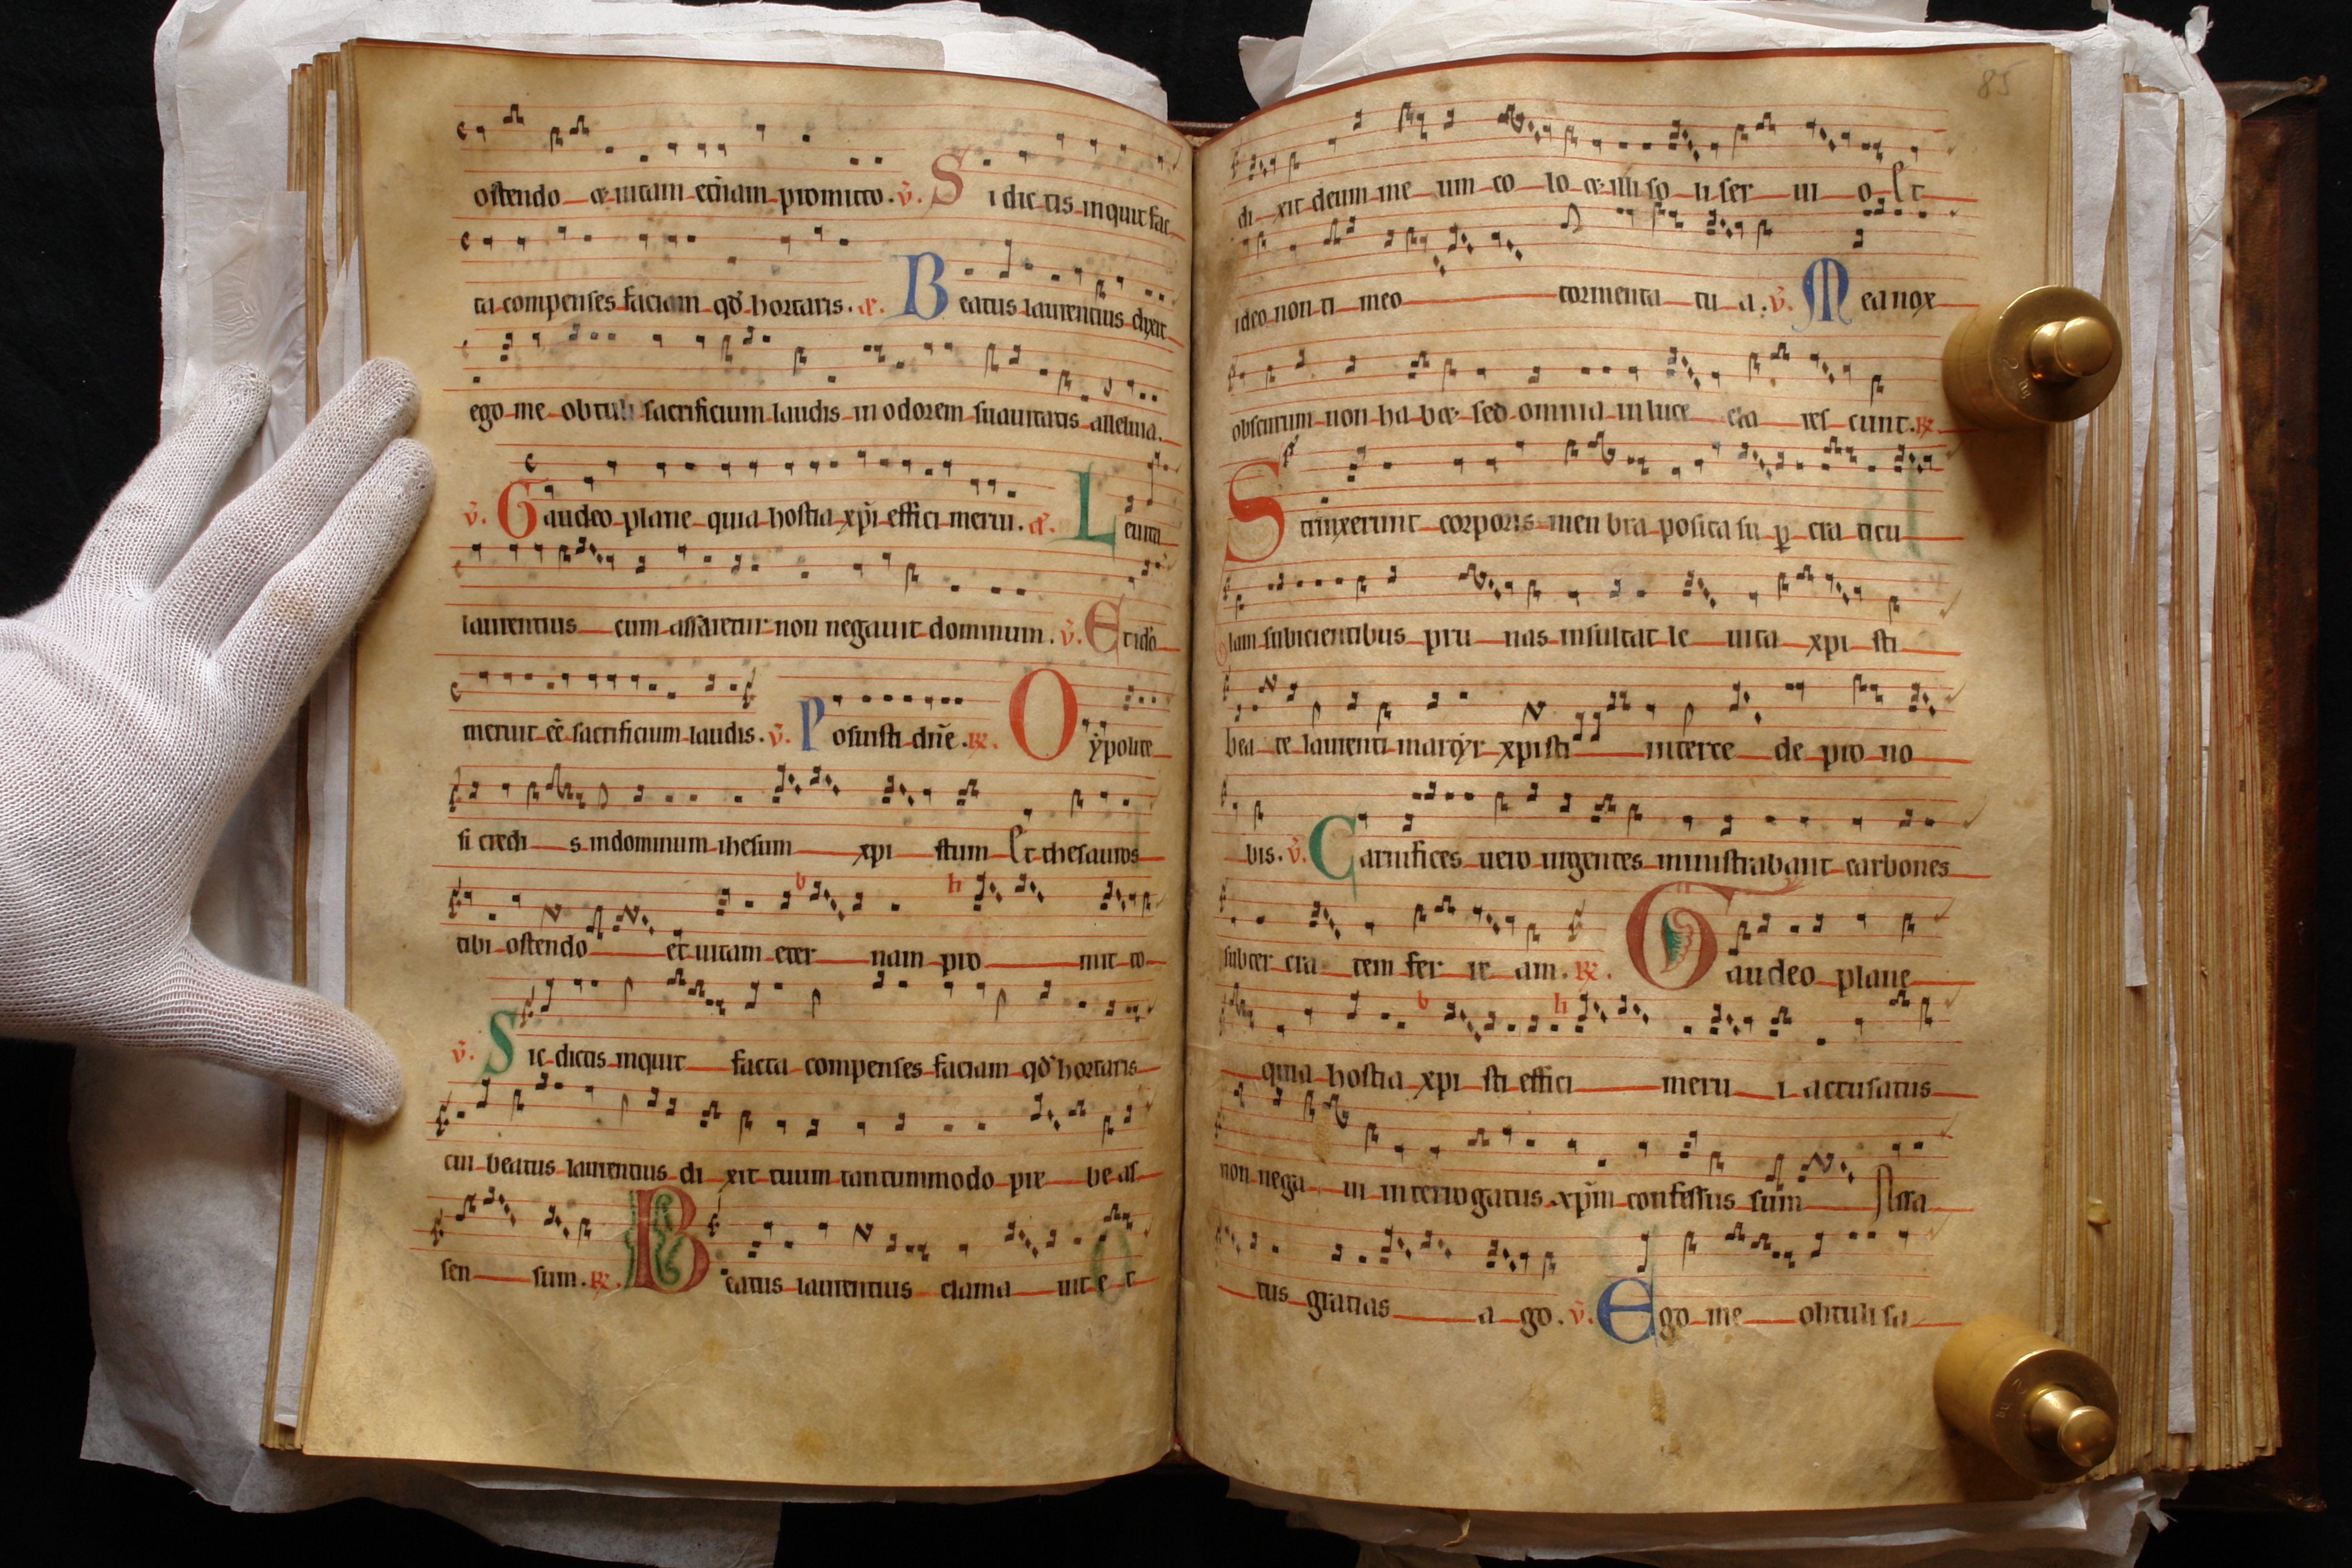 ostendo et uitam etnam promitto. v. Si dictis inquit fac
ta compenses faciam qd hortaris. a. Beatus laurentius dixit
ego me obtuli sacrificium laudis in odorem suauitatis alleluia.
v. Gaudeo plane quia hostia xpi effici merui. a. Leuita
laurentius cum assaretur non negauit dominum. v. Et ido
meruit eē sacrificium laudis. v. Posuisti dnē. R. O ypolite
si credi s in dominum ihesum xpi stum Et thesauros
tibi ostendo et uitam eter nam pro mit to
v. Sic dictis inquit facta compenses faciam qd hortaris
cui beatus laurentius di xit tuum tantummodo pre be as
sen sum. R. Beatus laurentius clama uit e t
85
di xit deum me um co lo et illi so li ser ui o Et
ideo non ti meo tormenta tu a. v. Mea nox
obscurum non ha bet sed omnia in luce cla res cunt. R.
Strinxerunt corporis men bra posita su p cra ticu
lam subicientibus pru nas insultat le uita xpi sti
bea te laurenti martyr xpisti interce de pro no
bis. v. Carnifices uero urgentes ministrabant carbones
subter cra tem fer re am. R. Gaudeo plane
quia hostia xpi sti effici meru i accusatus
non nega ui interrogatus xpm confessus sum Assa
tus gratias a go. v. Ego me obtuli sa